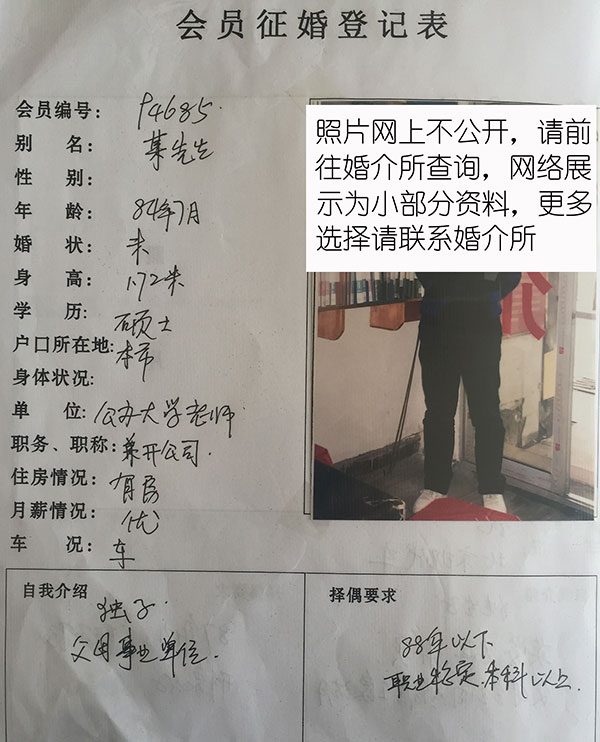 会员征婚登记表
会员编号： 94685.
别　名： 某先生
性　别：
年　龄： 84年7月
婚　状： 未
身　高： 1.72米
学　历： 硕士
户口所在地: 本市
身体状况:
单　位: 公办大学老师
职务、职称: 兼开公司.
住房情况： 有房
月薪情况： 优
车　况： 车
照片网上不公开，请前
往婚介所查询，网络展
示为小部分资料，更多
选择请联系婚介所
自我介绍
独子.
父母事业单位.
择偶要求
88年以下
职业稳定.本科以上.